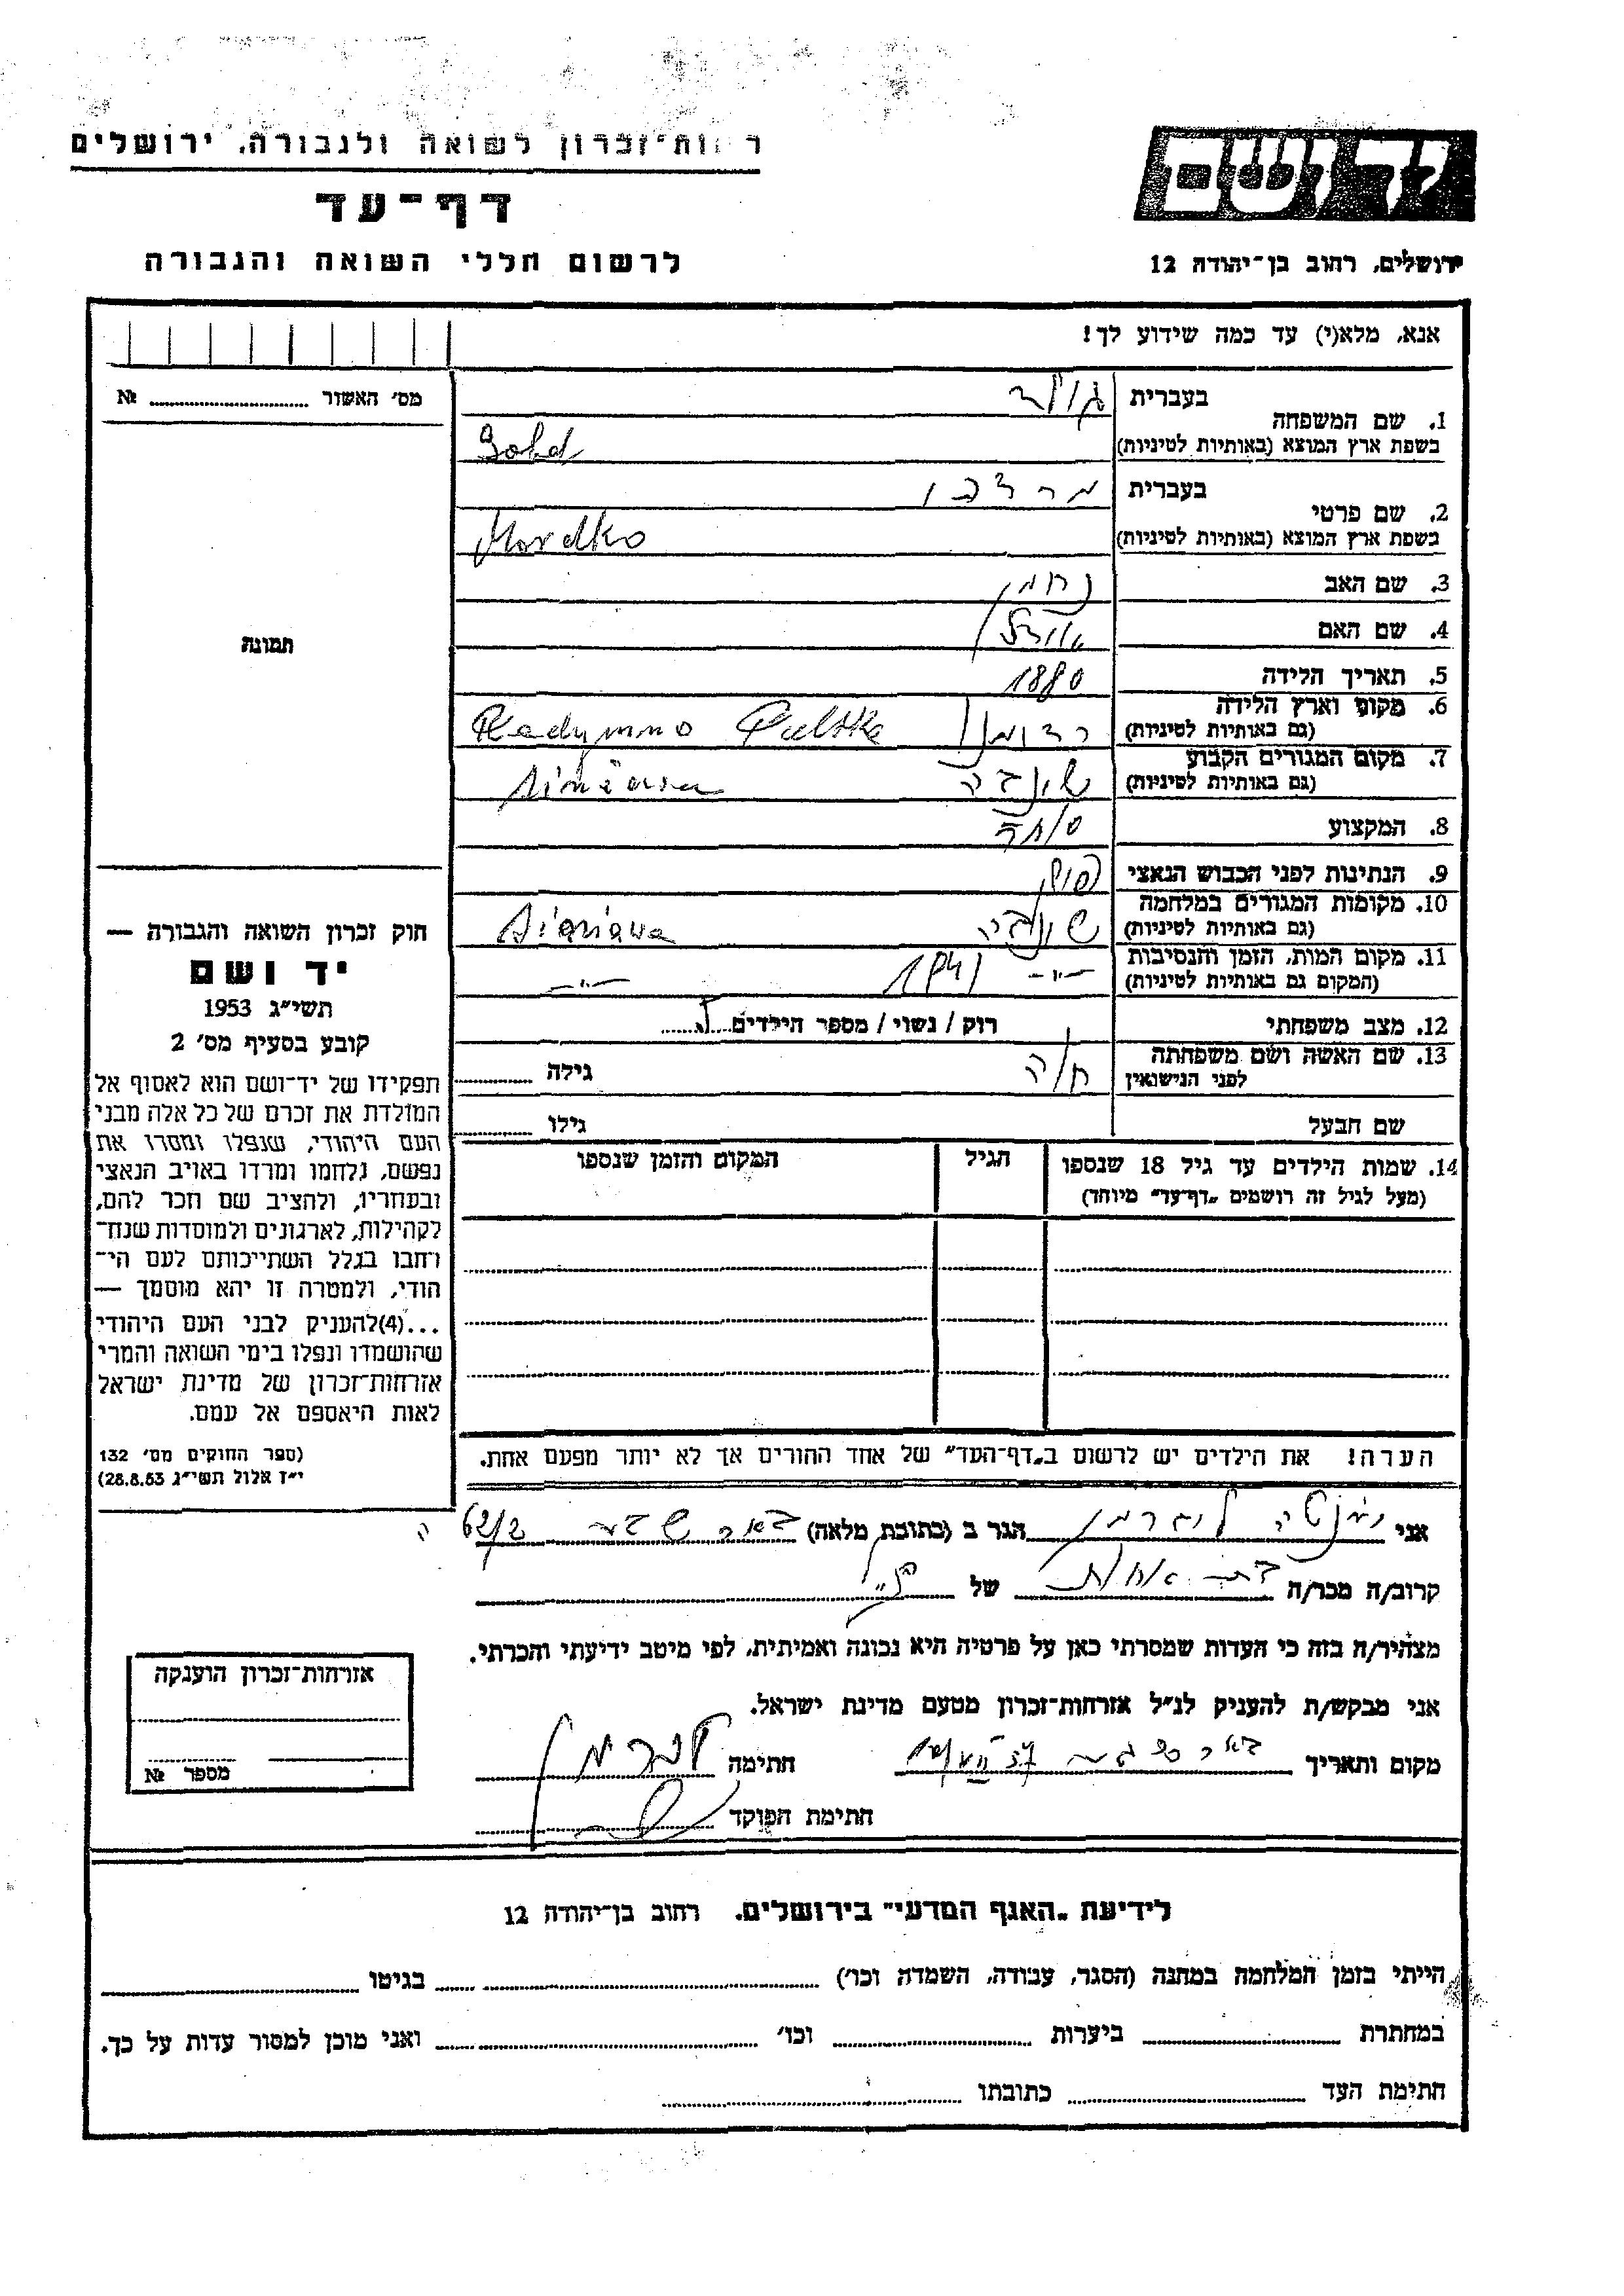 רשות־זכרון לשואה ולגבורה. ירושלים
דף־עד
לרשום חללי השואה והגבורה
יד ושם
ירושלים, רחוב בן־יהודה 12
אנא, מלא(י) עד כמה שידוע לך!
מס׳ האשור № 
תמונה
1. שם המשפחה
בעברית גולד
בשפת ארץ המוצא (באותיות לטיניות) Gold
2. שם פרטי
בעברית מרדכו
בשפת ארץ המוצא (באותיות לטיניות) Mordko
3. שם האב נחמן
4. שם האם
5. תאריך הלידה 1880
6. מקום וארץ הלידה
(גם באותיות לטיניות) רדומנו Radymno Polska
7. מקום המגורים הקבוע
(גם באותיות לטיניות) שינבה Sieniawa
8. המקצוע סוחר
9. הנתינות לפני הכבוש הנאצי פולני
10. מקומות המגורים במלחמה
(גם באותיות לטיניות) שינבה Sieniawa
11. מקום המות, הזמן והנסיבות
(המקום גם באותיות לטיניות) -״- 1941 -״-
12. מצב משפחתי רוק / נשוי / מספר הילדים
13. שם האשה ושם משפחתה
לפני הנישואין חיה גילה
שם הבעל גילו
14. שמות הילדים עד גיל 18 שנספו
(מעל לגיל זה רושמים „דף־עד״ מיוחד)
הגיל
המקום והזמן שנספו
הערה! את הילדים יש לרשום ב„דף־העד״ של אחד ההורים אך לא יותר מפעם אחת.
חוק זכרון השואה והגבורה —
יד ושם
תשי״ג 1953
קובע בסעיף מס׳ 2
תפקידו של יד־ושם הוא לאסוף אל
המולדת את זכרם של כל אלה מבני
העם היהודי, שנפלו ומסרו את
נפשם, נלחמו ומרדו באויב הנאצי
ובעוזריו, ולהציב שם וזכר להם,
לקהילות, לארגונים ולמוסדות שנח־
רבו בגלל השתייכותם לעם הי־
הודי, ולמטרה זו יהא מוסמך —
...(4)להעניק לבני העם היהודי
שהושמדו ונפלו בימי השואה והמרי
אזרחות־זכרון של מדינת ישראל
לאות היאספם אל עמם.
(ספר החוקים מס׳ 132
י״ז אלול תשי״ג 28.8.53)
אני הגר ב (כתובת מלאה) באר שבע ה 62/2
קרוב/ה מכר/ה בת אחות של הנ״ל
מצהיר/ה בזה כי העדות שמסרתי כאן על פרטיה היא נכונה ואמיתית, לפי מיטב ידיעתי והכרתי.
אני מבקש/ת להעניק לנ״ל אזרחות־זכרון מטעם מדינת ישראל.
מקום ותאריך באר שבע
חתימה
חתימת הפוקד
אזרחות־זכרון הוענקה
מספר №
לידיעת „האגף המדעי״ בירושלים. רחוב בן־יהודה 12
הייתי בזמן המלחמה במחנה (הסגר, עבודה, השמדה וכו׳) בגיטו
במחתרת ביערות וכו׳ ואני מוכן למסור עדות על כך.
חתימת העד כתובתו